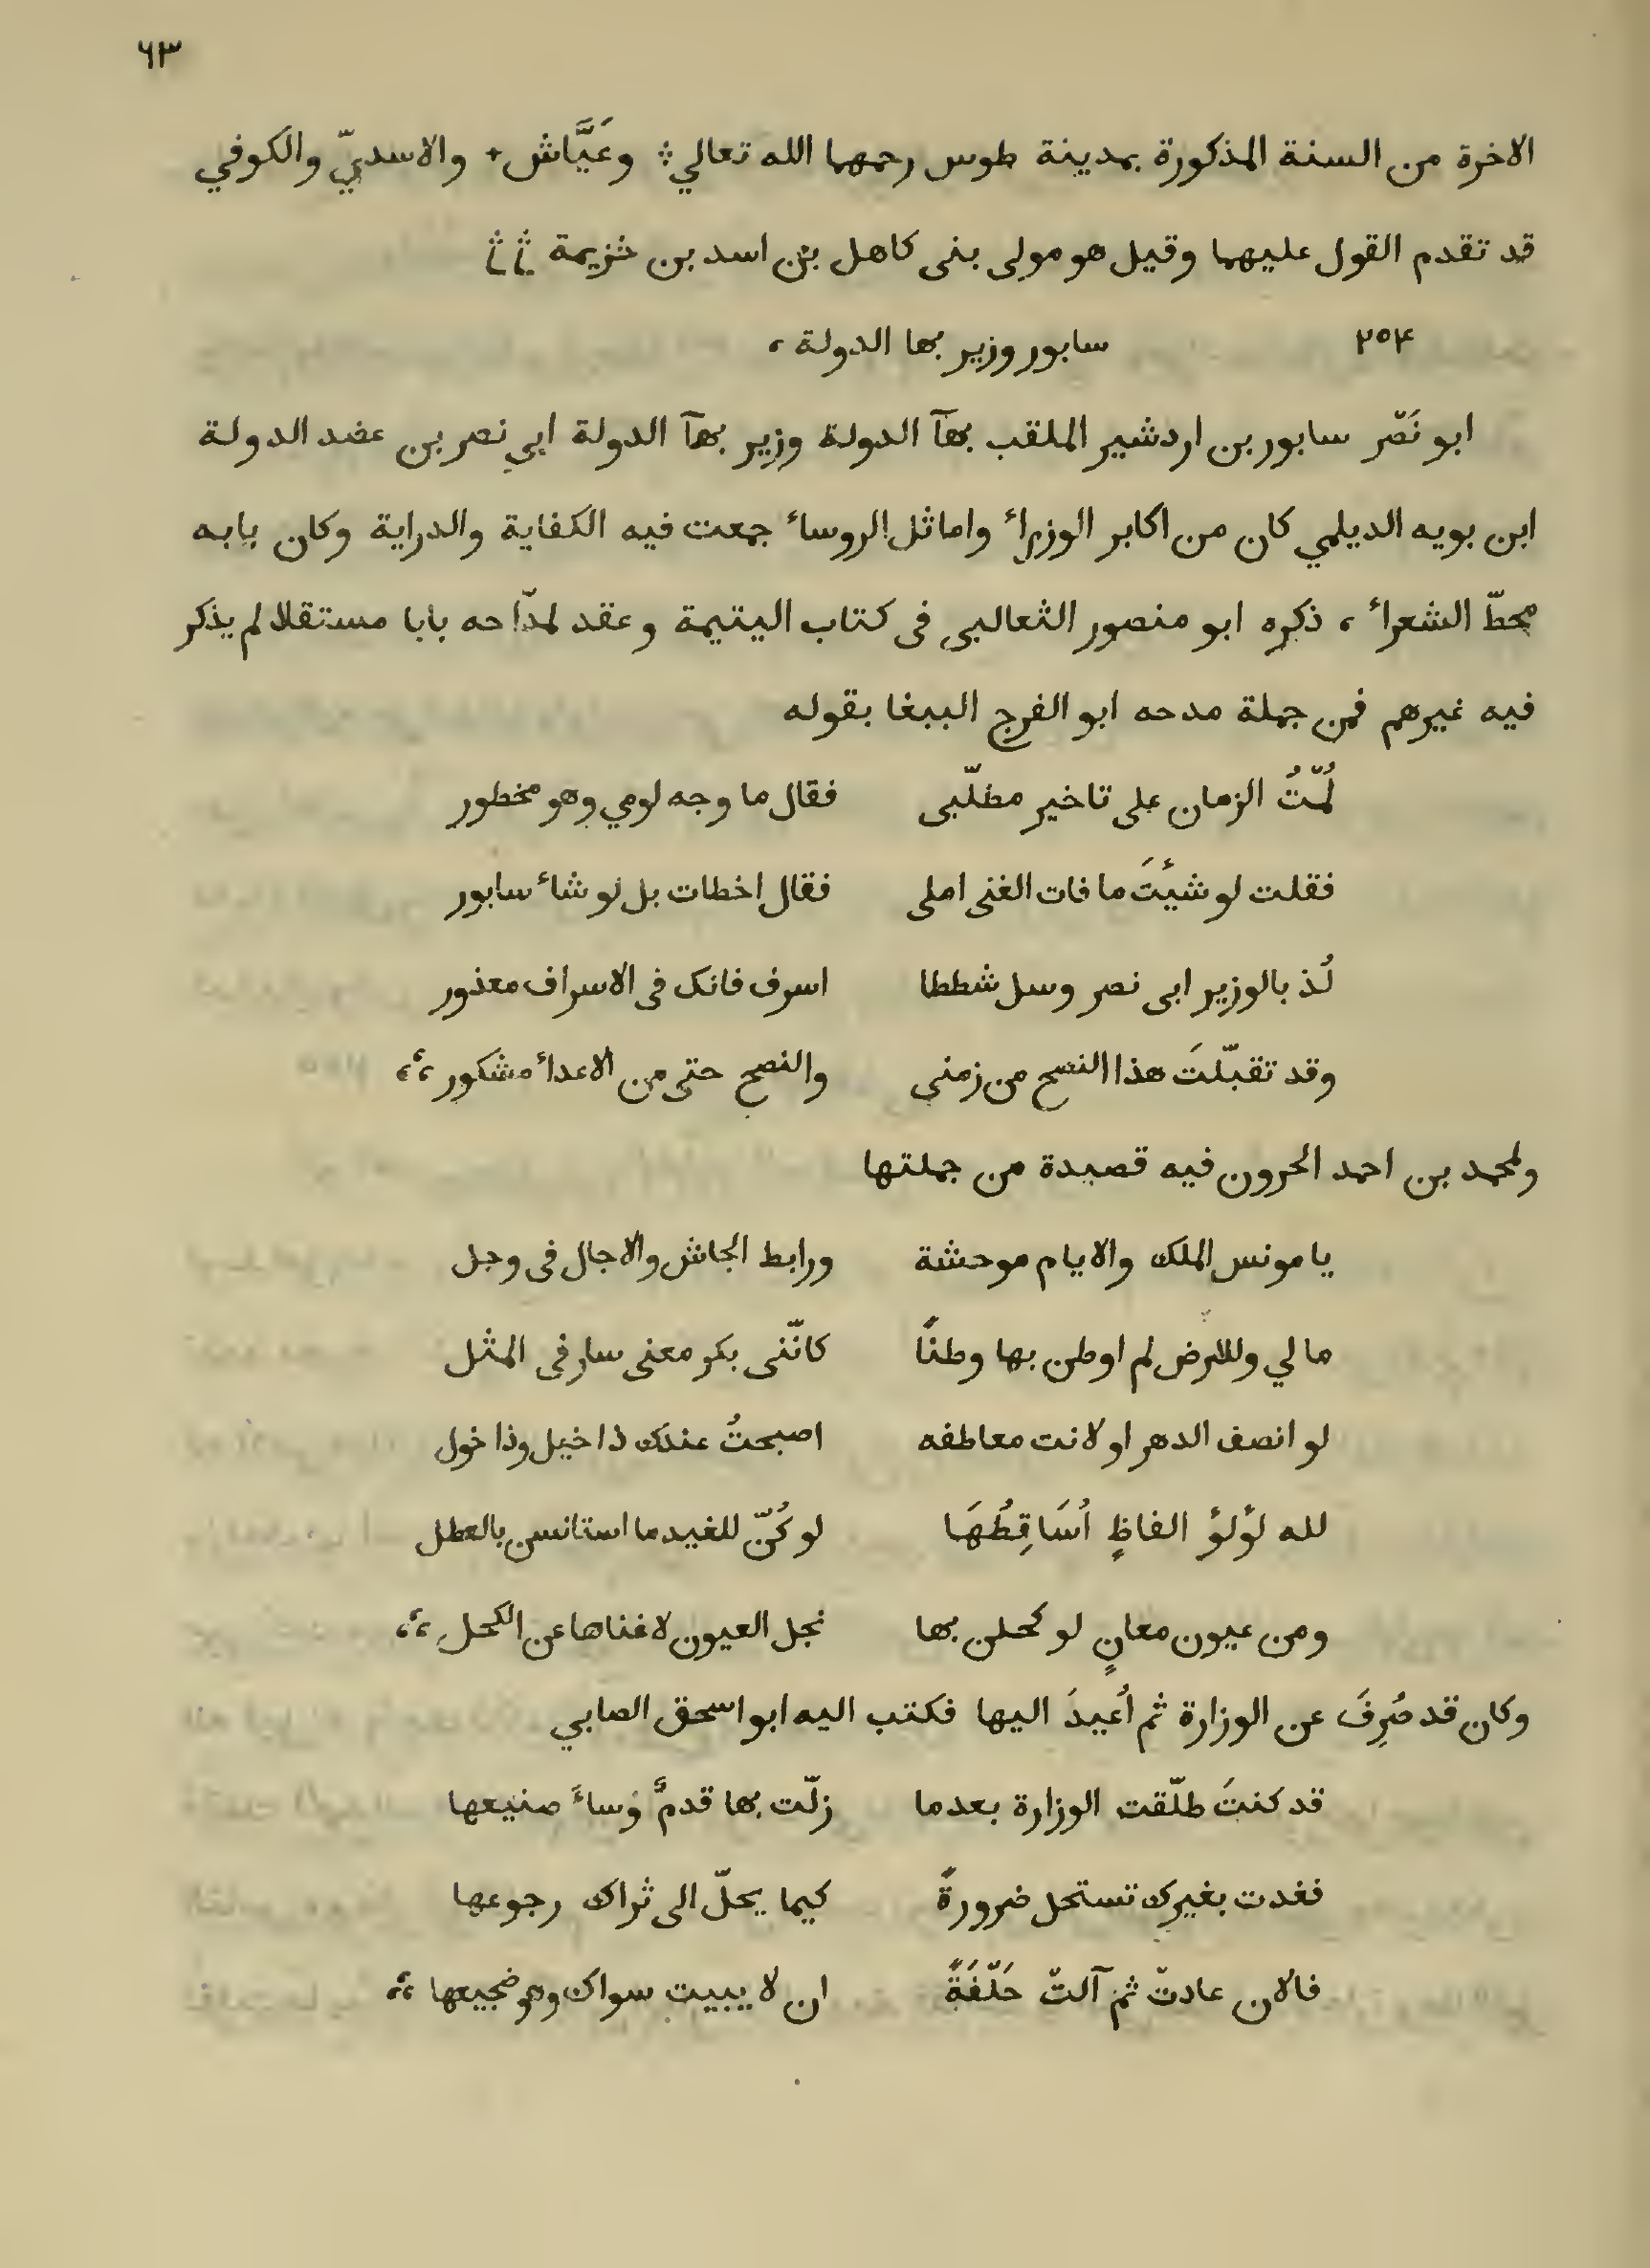 ٦٣
الاخرة من السنة المذكورة بمدينة طوس رحمهما الله تعالي ؞ وعَيَّاش + والاسديّ والكوفي
قد تقدم القول عليهما وقيل هو مولى بنى كاهل بن اسد بن خزيمة
٢٥٤ سابور وزير بها الدولة ،
ابو نَصْر سابور بن اردشير الملقب بهآ الدولة وزير بهآ الدولة ابي نصر بن عضد الدولة
ابن بويه الديلمي كان من اكابر الوزراء واماثل الروساء جمعت فيه الكفاية والدراية وكان بابه
محطّ الشعراء ، ذكره ابو منصور الثعالبي فى كتاب اليتيمة وعقد لمدّاحه بابا مستقلا لم يذكر
فيه غيرهم فمن جملة مدحه ابو الفرج الببغا بقوله
لُمْتُ الزمان على تاخير مطلّبى فقال ما وجه لومي وهو مخطور
فقلت لو شيئتَ ما فات الغنى املى فقال اخطات بل لو شاء سابور
لُذ بالوزير ابى نصر وسل شططا اسرف فانك فى الاسراف معذور
وقد تقبّلتَ هذا النصح من زمني والنصح حتى من الاعداء مشكور ؛،
ولمحمد بن احمد الحرون فيه قصيدة من جملتها
يا مونس الملك والايام موحشة ورابط الجاش والاجال فى وجل
ما لي وللارض لم اوطن بها وطنًا كانّنى بكر معنى سار فى المثل
لو انصف الدهر او لانت معاطفه اصبحتُ عندك ذا خيل وذا خول
لله لؤلؤ الفاظٍ اُسَاقِطُهَا لو كُنّ للغيد ما استانسن بالعطل
ومن عيون معانٍ لو كحلن بها نجل العيون لاغناها عن الكحل ؛،
وكان قد صُرِفَ عن الوزارة ثم اُعيدَ اليها فكتب اليه ابو اسحق الصابي
قد كنتَ طلّقت الوزارة بعدما زلّت بها قدمٌ وَساءَ صنيعها
فغدت بغيرك تستحل ضرورةً كيما يحلّ الى ثراك رجوعها
فالان عادتّ ثم آلتّ حَلْفَةً ان لا يبيت سواك وهو ضجيعها ؛،